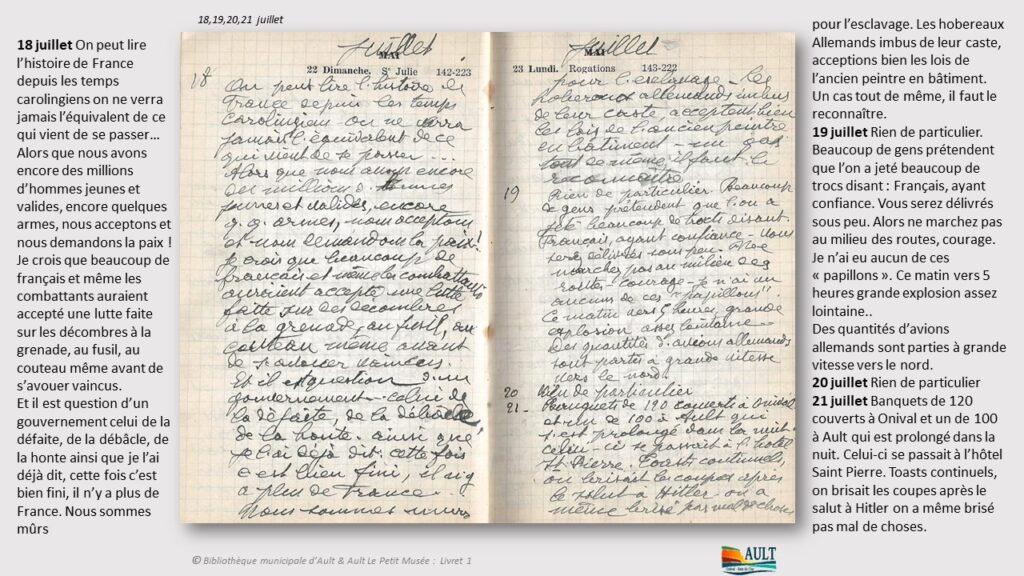 18,19,20,21 juillet
18 juillet On peut lire
l’histoire de France
depuis les temps
carolingiens on ne verra
jamais l’équivalent de ce
qui vient de se passer…
Alors que nous avons
encore des millions
d’hommes jeunes et
valides, encore quelques
armes, nous acceptons et
nous demandons la paix !
Je crois que beaucoup de
français et même les
combattants auraient
accepté une lutte faite
sur les décombres à la
grenade, au fusil, au
couteau même avant de
s’avouer vaincus.
Et il est question d’un
gouvernement celui de la
défaite, de la débâcle, de
la honte ainsi que je l’ai
déjà dit, cette fois c’est
bien fini, il n’y a plus de
France. Nous sommes
mûrs
juillet
MAI
22 Dimanche. Sᵗᵉ Julie 142-223
18 On peut lire l'histoire de
France depuis les temps
Carolingiens on ne verra
jamais l'équivalent de ce
qui vient de se passer...
Alors que nous avons encore
des millions d'hommes
jeunes et valides, encore
q.q. armes, nous acceptons
et nous demandons la paix!
je crois que beaucoup de
français et même les combattants
auraient accepté une lutte
faite sur des décombres
à la grenade, au fusil, au
couteau même avant
de s'avouer vaincus.
Et il est question d'un
gouvernement celui de
la défaite, de la débâcle
de la honte ainsi que
je l'ai déjà dit, cette fois
c'est bien fini, il n'y
a plus de France.
Nous sommes murs
juillet
MAI
23 Lundi. Rogations 143-222
pour l'esclavage. Les
hobereaux allemands imbus
de leur caste, acceptent bien
les lois de l'ancien peintre
en bâtiment - un cas
tout de même il faut le
reconnaitre
19 Rien de particulier. Beaucoup
de gens prétendent que l'on a
jeté beaucoup de tracts disant.
Français, ayant confiance - Vous
serez délivrés sous peu. Alors ne
marchez pas au milieu des
routes - courage - je n'ai eu
aucuns de ces "papillons"
Ce matin vers 5 heures, grande
explosion assez lointaine -
Des quantités d'avions allemands
sont partis à grande vitesse
vers le nord.
20 Rien de particulier
21 - Banquets de 120 couverts à Onival
et un de 100 à Ault qui
s'est prolongé dans la nuit -
celui-ci se passait à l'hôtel
St Pierre. Toasts continuels,
on brisait les coupes après
le salut à Hitler on a
même brisé pas mal de choses
pour l’esclavage. Les hobereaux
Allemands imbus de leur caste,
acceptions bien les lois de
l’ancien peintre en bâtiment.
Un cas tout de même, il faut le
reconnaître.
19 juillet Rien de particulier.
Beaucoup de gens prétendent
que l’on a jeté beaucoup de
trocs disant : Français, ayant
confiance. Vous serez délivrés
sous peu. Alors ne marchez pas
au milieu des routes, courage.
Je n’ai eu aucun de ces
« papillons ». Ce matin vers 5
heures grande explosion assez
lointaine..
Des quantités d’avions
allemands sont parties à grande
vitesse vers le nord.
20 juillet Rien de particulier
21 juillet Banquets de 120
couverts à Onival et un de 100
à Ault qui est prolongé dans la
nuit. Celui-ci se passait à l’hôtel
Saint Pierre. Toasts continuels,
on brisait les coupes après le
salut à Hitler on a même brisé
pas mal de choses.
© Bibliothèque municipale d’Ault & Ault Le Petit Musée : Livret 1
AULT